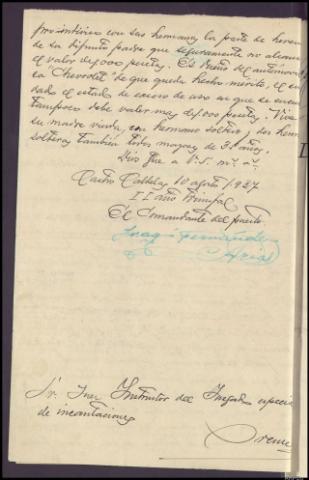 proindiviso con sus hermanos la parte de heren
de su difunto padre que seguramente no alcanz
el valor de 6.000 pesetas. Es dueño del automóvil
la Chevrolet de que queda hecho mérito, el cu
dado el estado de exceso de uso en que se encu
tampoco debe valer mas de 1.000 pesetas. Vive
su madre viuda, un hermano soltero y dos herm
solteras también todos mayores de 31 años.
Dios gue a V.S. ms. as.
Castro Caldelas 10 agosto 1937
II año Triunfal
El Comandante del puesto
Joaqn Fernández
Arias
Sr. Juez Instructor del Juzgado especial
de incautaciones
Orense